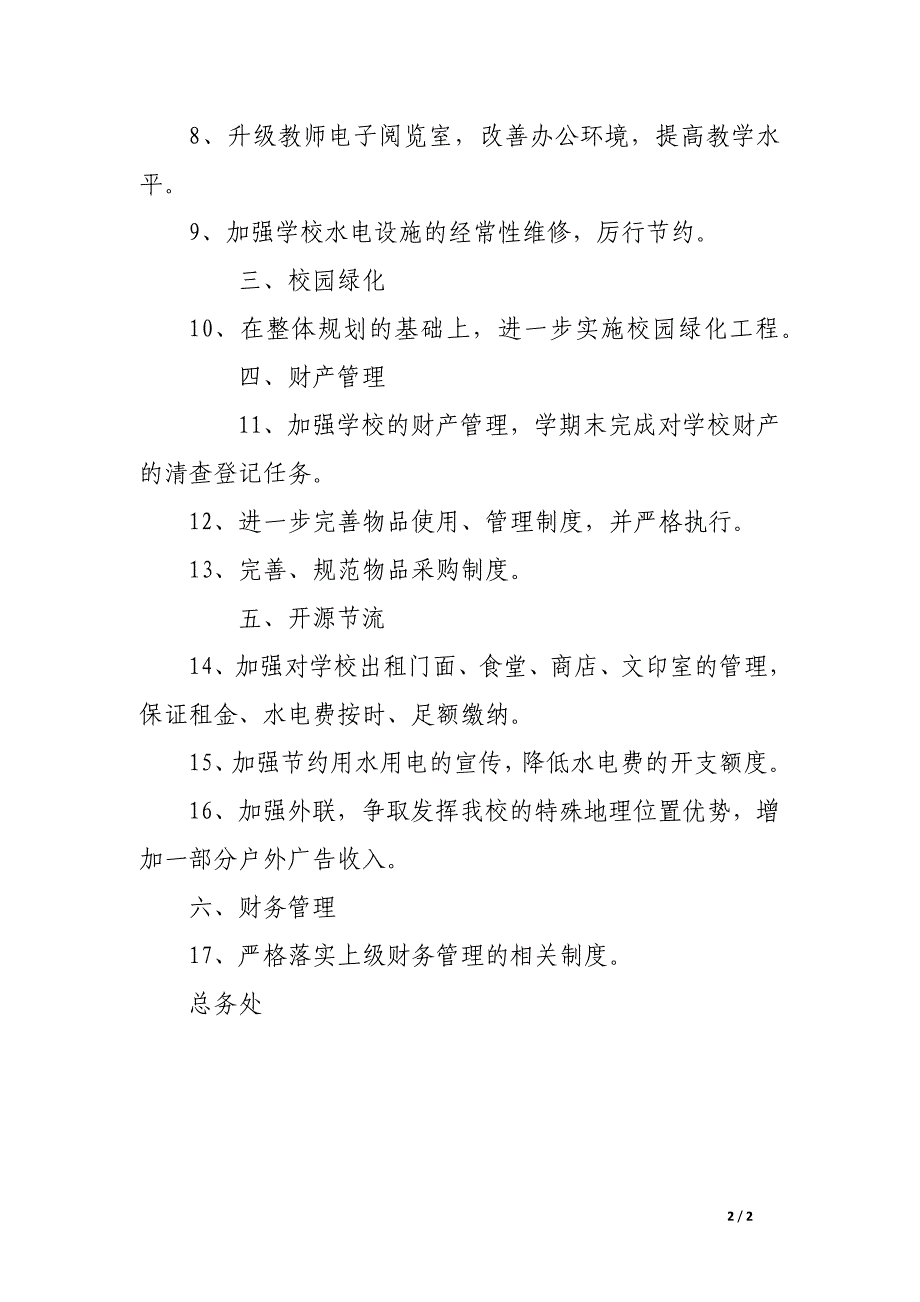 8、升级教师电子阅览室，改善办公环境，提高教学水
平。
9、加强学校水电设施的经常性维修，厉行节约。
三、校园绿化
10、在整体规划的基础上，进一步实施校园绿化工程。
四、财产管理
11、加强学校的财产管理，学期末完成对学校财产
的清查登记任务。
12、进一步完善物品使用、管理制度，并严格执行。
13、完善、规范物品采购制度。
五、开源节流
14、加强对学校出租门面、食堂、商店、文印室的管理，
保证租金、水电费按时、足额缴纳。
15、加强节约用水用电的宣传，降低水电费的开支额度。
16、加强外联，争取发挥我校的特殊地理位置优势，增
加一部分户外广告收入。
六、财务管理
17、严格落实上级财务管理的相关制度。
总务处
2 / 2